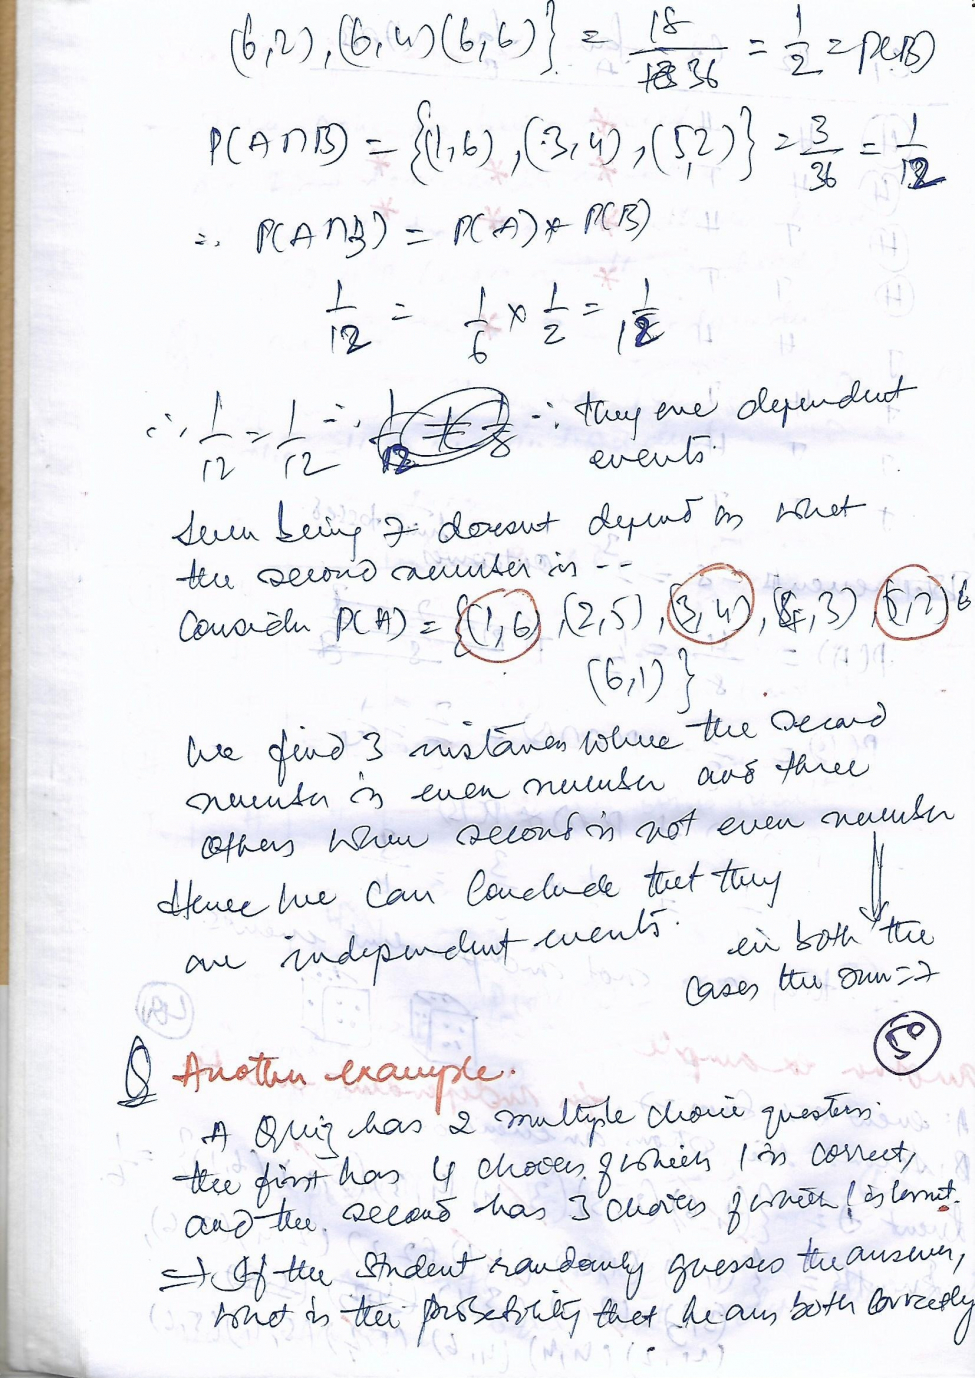 (6,2), (6,4) (6,6)} = 18/36 = 1/2 = P(B)
P(A∩B) = {(1,6), (3,4), (5,2)} = 3/36 = 1/12
∴ P(A∩B) = P(A) * P(B)
1/12 = 1/6 × 1/2 = 1/12
∴ 1/12 = 1/12 ∴ 1/12 ≠ 1/8 ∴ they are dependent
events.
Seven being 7 doesnt depend on what
the second number is --
Consider P(A) = {(1,6), (2,5), (3,4), (4,3), (5,2)
(6,1)}
We find 3 instances where the second
number is even number and three
others when second is not even number
Hence we can conclude that they
are independent events.
in both the
cases the sum = 7
Q Another example.
A Quiz has 2 multiple choice questions.
the first has 4 choices of which 1 is correct,
and the second has 3 choices of which 1 is correct.
⇒ If the student randomly guesses the answer,
what is the probability that he ans both correctly